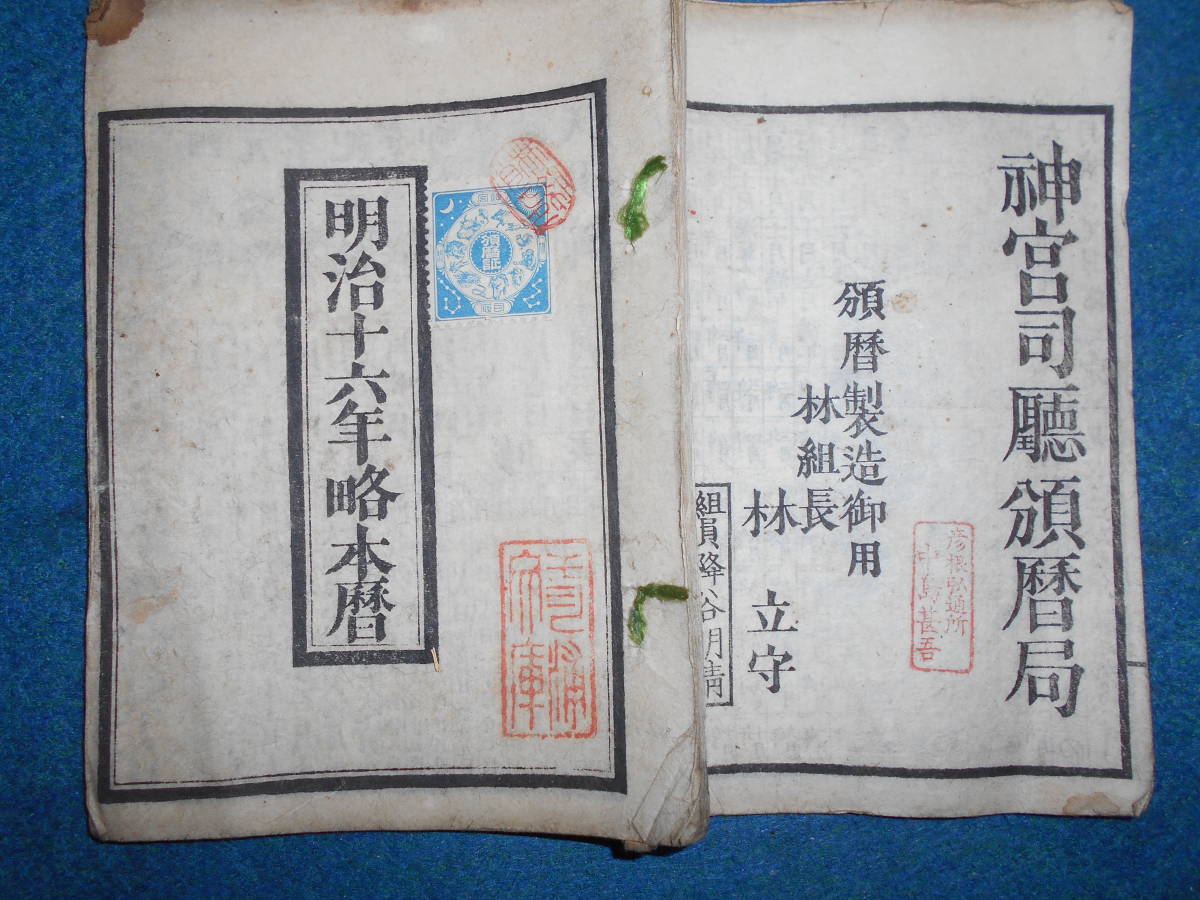 神宮司廳頒暦局
彦根弘通所
中島甚吾
頒暦製造御用
林組長
林立守
組員
明治十六年略本暦
頒暦証